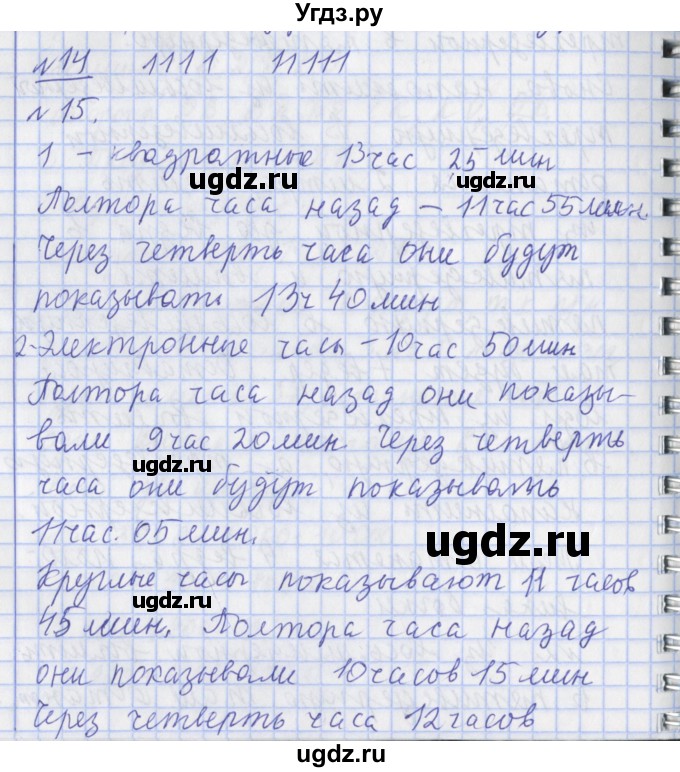 Угдз.ру
№14 1111 11111
№15.
1 - квадратные 13 час 25 мин
ugdz.ru ugdz.ru
Полтора часа назад - 11 час 55 мин.
Через четверть часа они будут
показывать 13 ч 40 мин
2-Электронные часы - 10 час 50 мин
Полтора часа назад они показы-
вали 9 час 20 мин Через четверть
ugdz.ru
часа они будут показывать
11 час. 05 мин.
ugdz.ru
Круглые часы показывают 11 часов
ugdz.ru
45 мин, Полтора часа назад
они показывали 10 часов 15 мин
Через четверть часа 12 часов
ugdz.ru